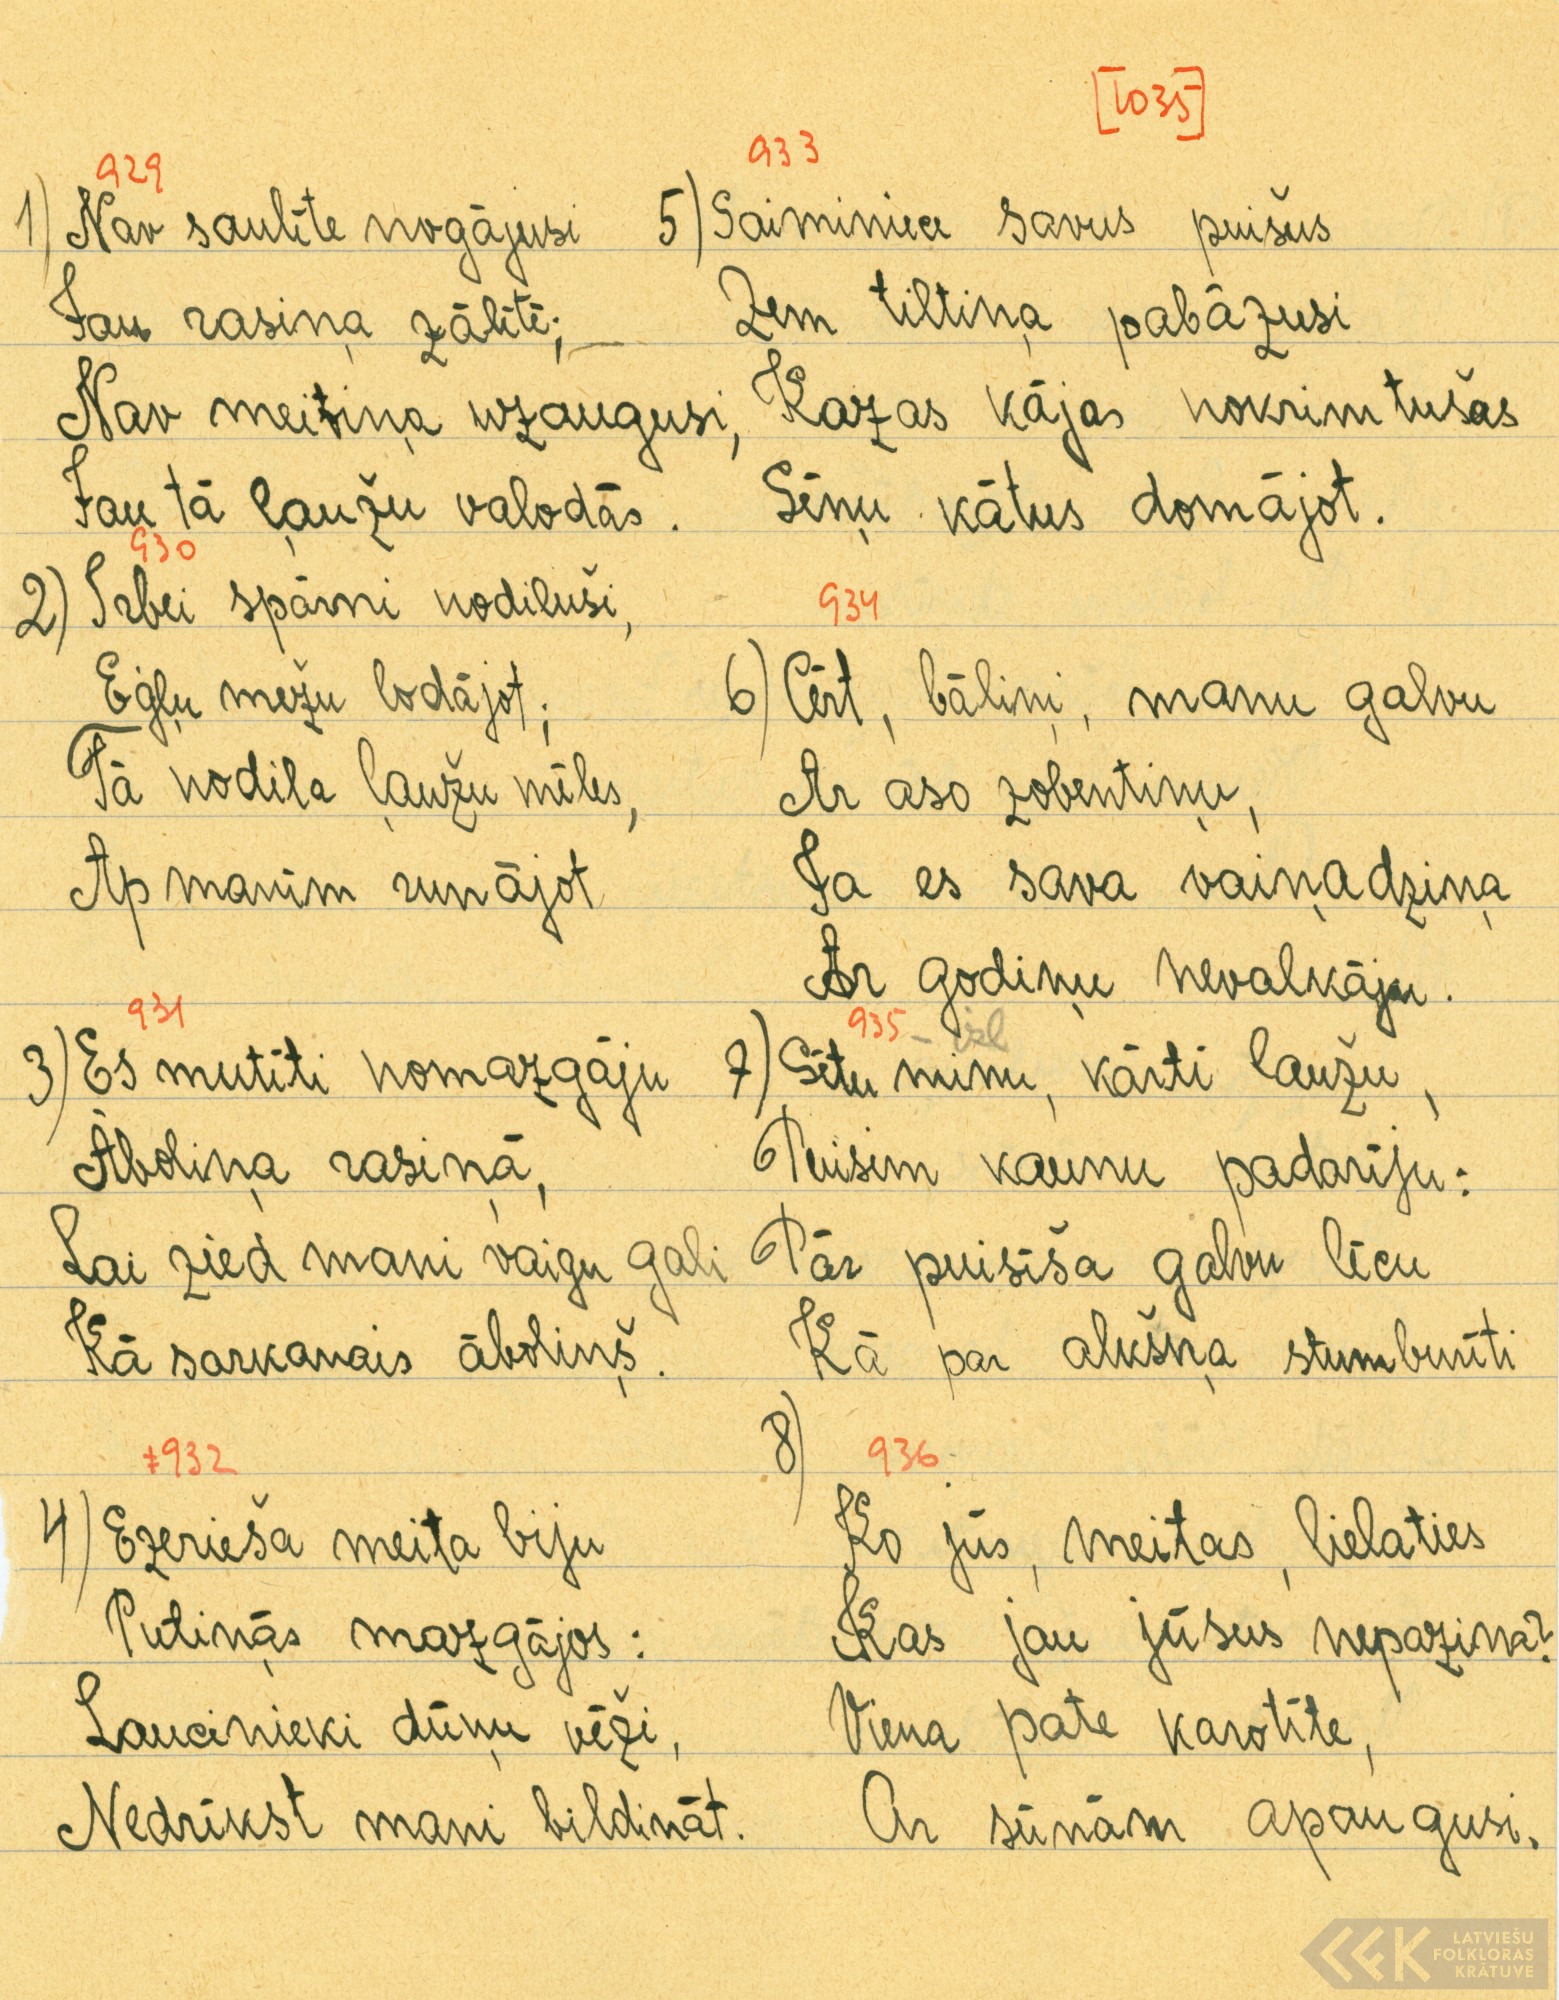 [1035]
929
1) Nav saulīte nogājusi
Jau rasiņa zālītē;
Nav meitiņa uzaugusi,
Jau tā ļaužu valodās.
930
2) Irbei spārni nodiluši,
Egļu mežu lodājot;
Tā nodila ļaužu mēles,
Ap manīm runājot
931
3) Es mutīti nomazgāju
Āboliņa rasiņā,
Lai zied mani vaigu gali
Kā sarkanais āboliņš.
≠932
4) Ezerieša meita biju
Putiņās mazgājos:
Laucinieki dūņu vēži,
Nedrīkst mani bildināt.
933
5) Saiminiece savus puišus
Zem tiltiņa pabāzusi
Kazas kājas nokrimtušas
Sēņu kātus domājot.
934
6) Cērt, bāliņi, manu galvu
Ar aso zobentiņu,
Ja es sava vaiņadziņa
Ar godiņu nevalkāju.
935 – izl
7) Sētu minu, kārti laužu,
Puisim kaunu padarīju:
Pār puisīša galvu līcu
Kā par alkšņa stumburīti
8)
936
Ko jūs, meitas, lielaties
Kas jau jūsus nepazina?
Viena pate karotīte,
Ar sūnām apaugusi.
LATVIEŠU
FOLKLORAS
KRĀTUVE